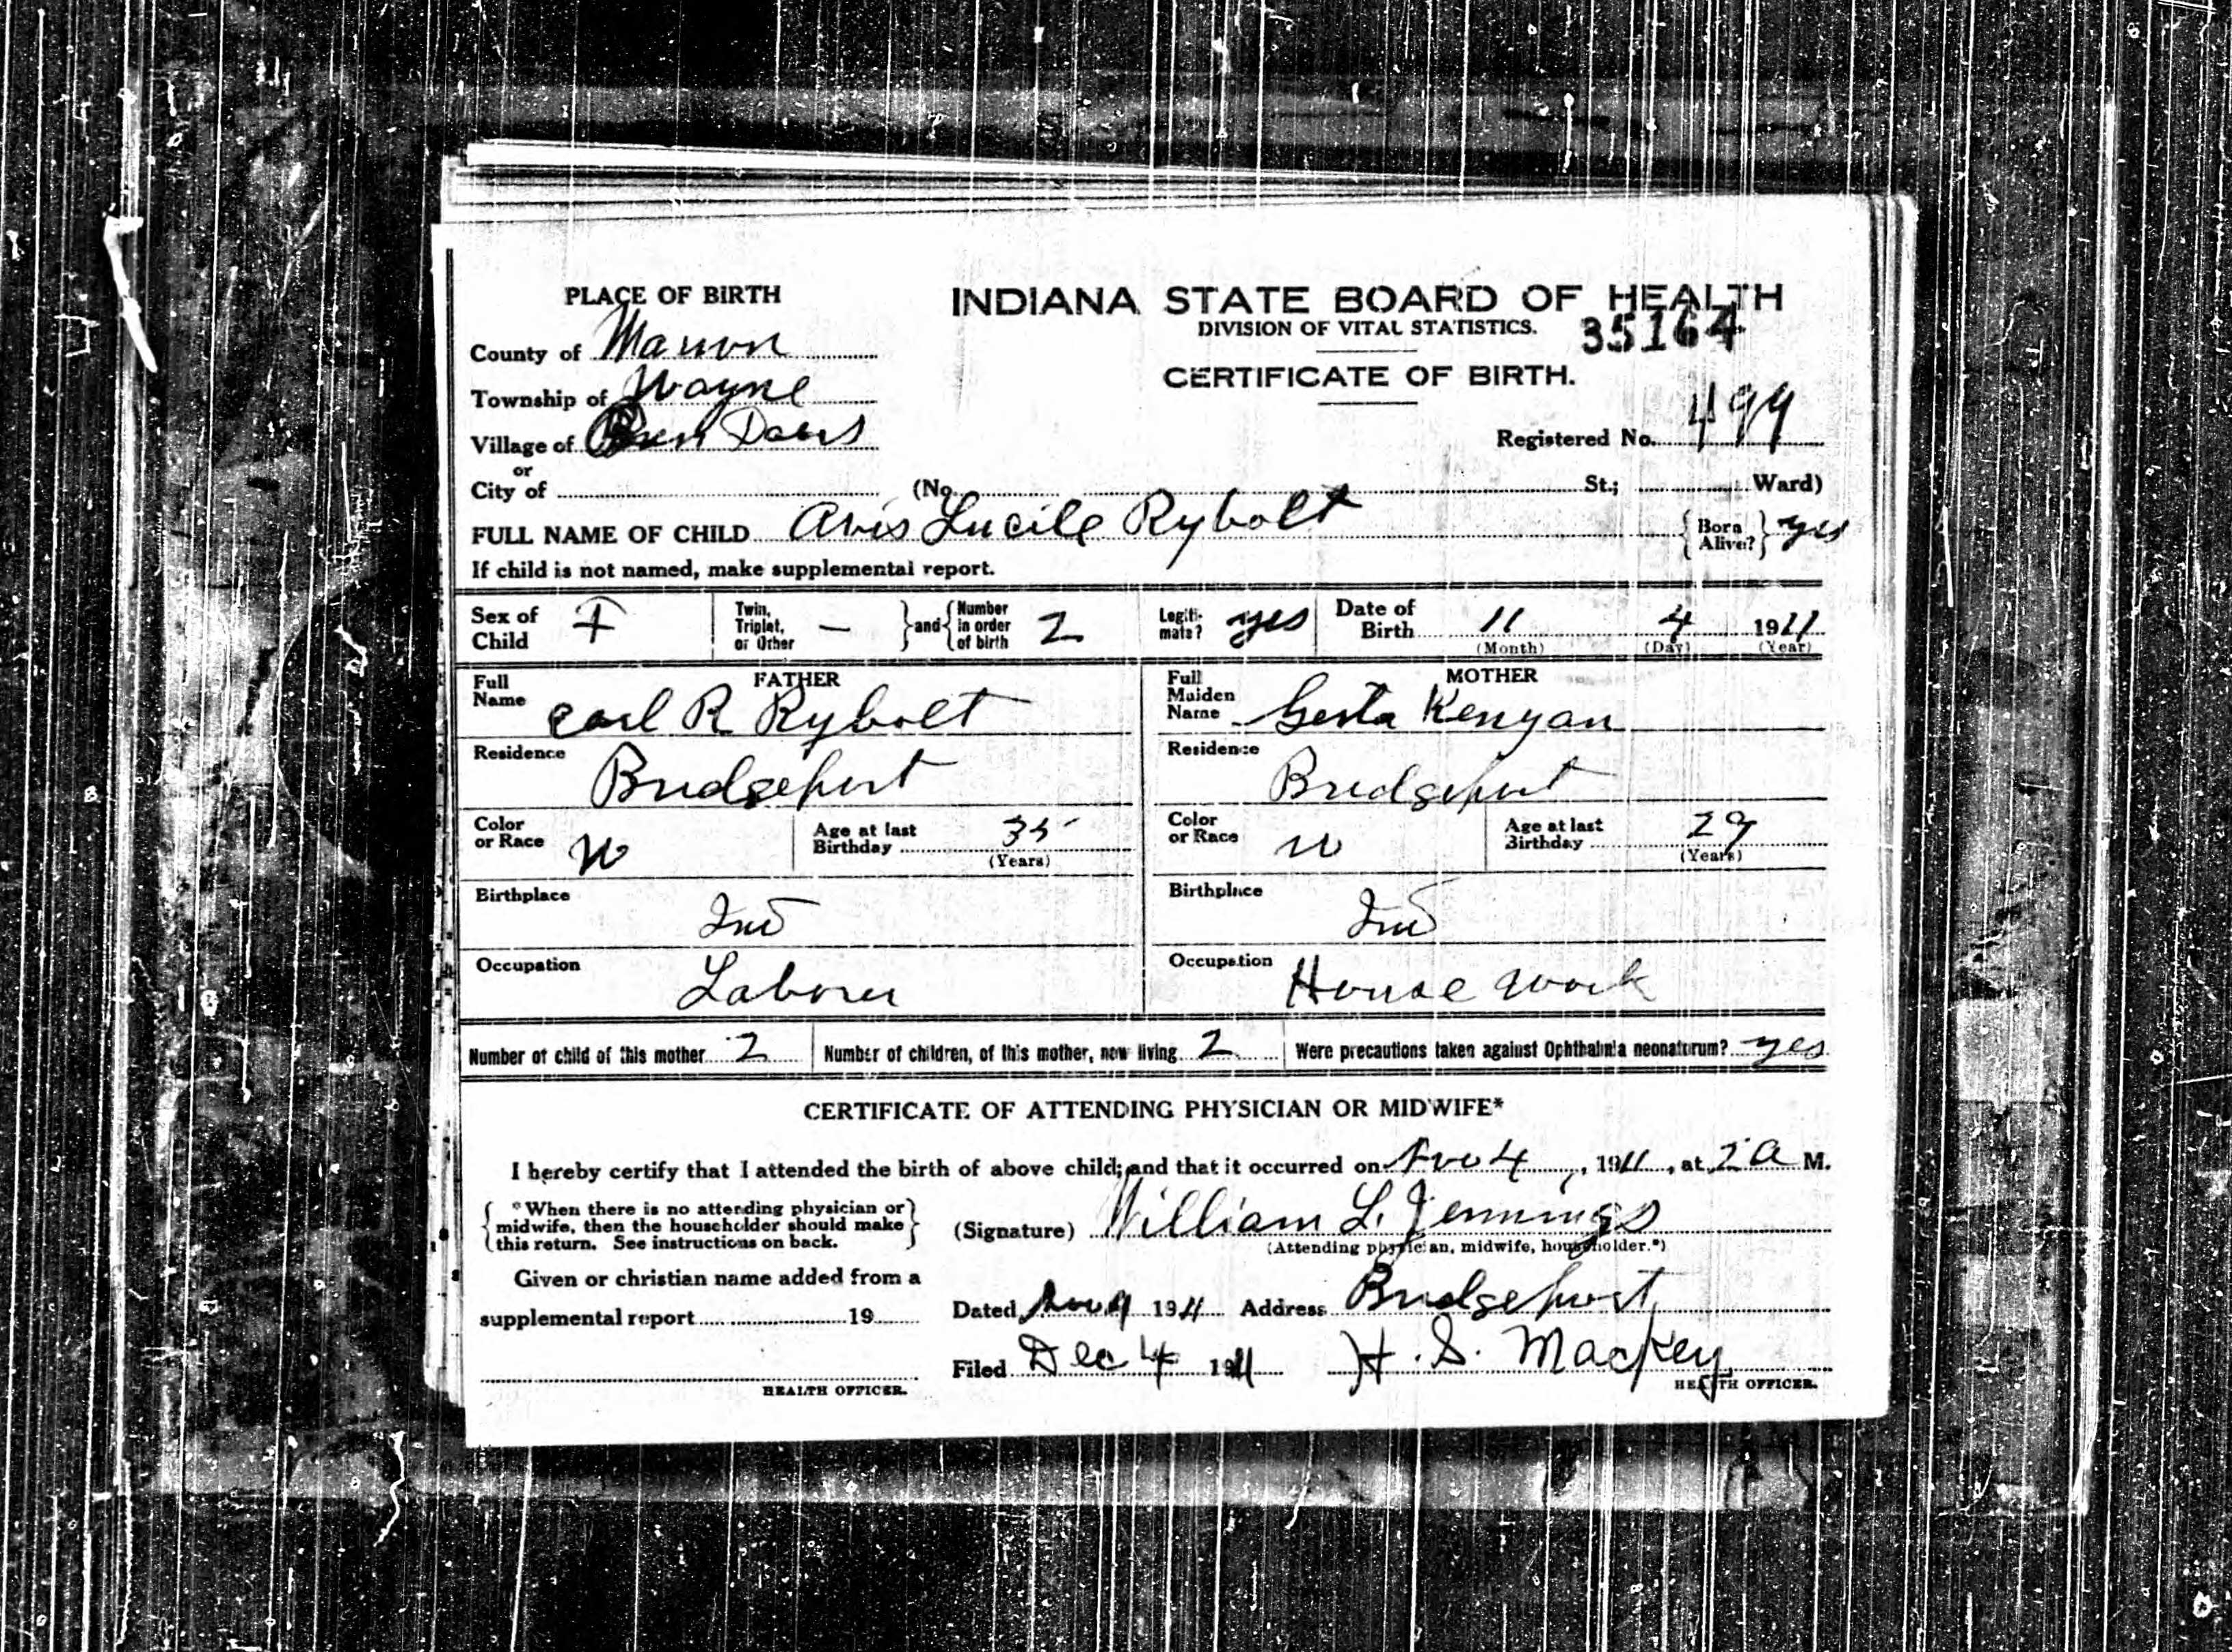 PLACE OF BIRTH
INDIANA STATE BOARD OF HEALTH
DIVISION OF VITAL STATISTICS.
35164
CERTIFICATE OF BIRTH.
County of Marion
Township of Wayne
Village of Ben Davis
or
City of
Registered No. 499
(No. St.; Ward)
FULL NAME OF CHILD Avis Lucile Rybolt { Born Alive? } yes
If child is not named, make supplemental report.
Sex of Child F
Twin, Triplet, or Other — } and { Number in order of birth 2
Legitimate? yes
Date of Birth 11 4 1911
(Month) (Day) (Year)
FATHER
Full Name Carl R Rybolt
Residence Bridgeport
Color or Race W
Age at last Birthday 35
(Years)
Birthplace Ind
Occupation Laborer
MOTHER
Full Maiden Name Kenyan
Residence Bridgeport
Color or Race W
Age at last Birthday 29
(Years)
Birthplace Ind
Occupation House work
Number of child of this mother 2
Number of children, of this mother, now living 2
Were precautions taken against Ophthalmia neonatorum? yes
CERTIFICATE OF ATTENDING PHYSICIAN OR MIDWIFE*
I hereby certify that I attended the birth of above child; and that it occurred on Nov 4, 1911, at 2 a M.
{ *When there is no attending physician or
midwife, then the householder should make
this return. See instructions on back. }
(Signature) William L. Jennings
(Attending physician, midwife, householder.*)
Given or christian name added from a
supplemental report 19
HEALTH OFFICER.
Dated Nov 1911 Address Bridgeport
Filed Dec 4 1911 H. S. Mackey
HEALTH OFFICER.